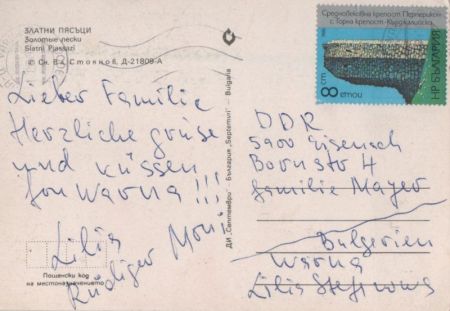 ЗЛАТНИ ПЯСЪЦИ
Золотые пески
Slatni Pjassazi
© Сн. В. Стоянов, Д-21809-А
Lieber Familie
Herzliche grüse
und küssen
fon Warna !!!
Lilia
Rüdiger Moni
Пощенски код
на местоназначението
ДИ „Септември“ България „Septemvri“ — Bulgaria
Средновековна крепост Перперикон
с. Горна крепост - Кърджалийско
8 СТ.
НР БЪЛГАРИЯ
DDR
5900 Eisenach
Bornstr 4
familie Mayer
Bulgerien
Warna
Lilia